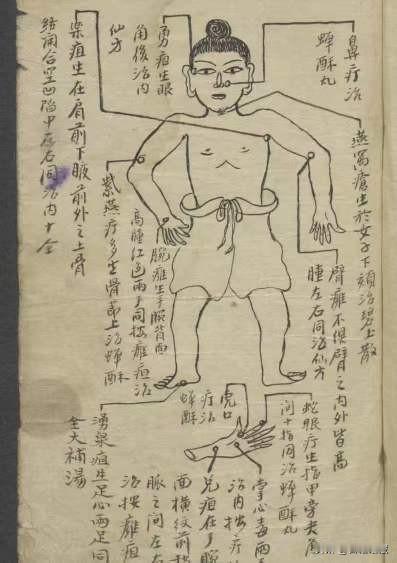 鼻疔治
蟬酥丸
燕窩瘡生於女子下頦治碧玉散
臂癰不俱臂之內外皆高
腫左右同治仙方
勇疽生眼
角後治内
仙方
樂疽生在肩前下腋前外之上骨
縫開合空凹陷中左右同治内十全
腕癰生手腕背面
高腫红色兩手同按癰疽治
紫燕疔多生骨節上治蟬酥
蛇眼疔生指甲旁夹角
间十指同治蟬酥丸
掌心毒兩手
治内按疔
兑疽在手腕
面橫紋前
脈之间左右
治按癰疽
虎口
疔治
蟬酥
湧泉疽生足心兩足同
全大補湯